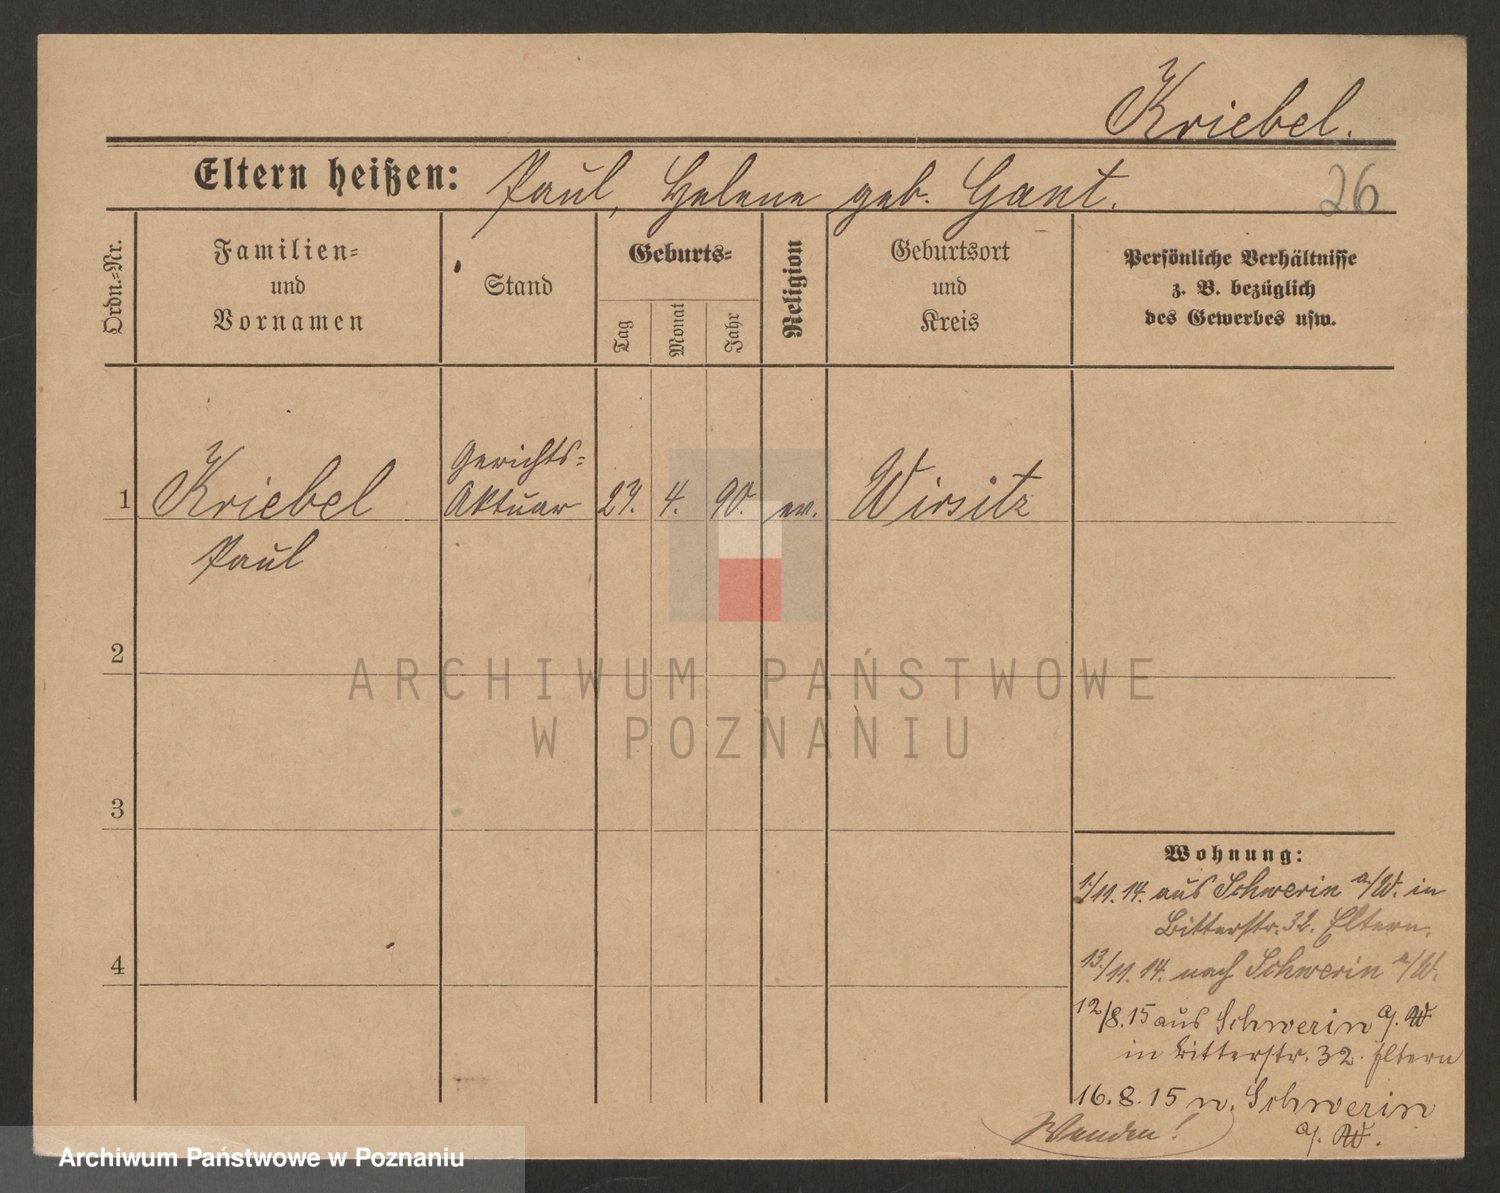 Kriebel.
Eltern heißen: Paul, Helene geb. Gant.
26
Ordn.-Nr.
Familien-
und
Vornamen
Stand
Geburts-
Tag
Monat
Jahr
Religion
Geburtsort
und
Kreis
Persönliche Verhältnisse
z. B. bezüglich
des Gewerbes usw.
Gerichts-
1 Kriebel Aktuar 4. 90. ev. Wirsitz
Paul
2
ARCHIWUM PAŃSTWOWE
W POZNANIU
3
Wohnung:
1./11. 14. aus Schwerin a/W. in
Ritterstr. 32. Eltern.
4
13./11. 14. nach Schwerin a/W.
12/8. 15 aus Schwerin a/. W
in Ritterstr. 32. Eltern
16. 8. 15 n. Schwerin
a/. W.
Wenden!
Archiwum Państwowe w Poznaniu